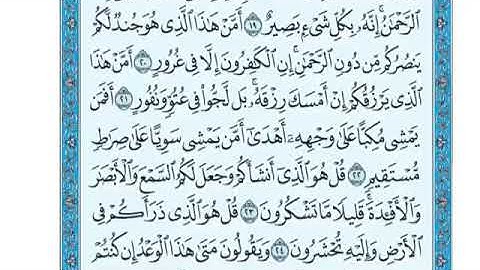 الرَّحْمَٰنُ ۚ إِنَّهُ بِكُلِّ شَىْءٍۭ بَصِيرٌ ١٩ أَمَّنْ هَٰذَا الَّذِى هُوَ جُندٌ لَّكُمْ
يَنصُرُكُم مِّن دُونِ الرَّحْمَٰنِ ۚ إِنِ الْكَٰفِرُونَ إِلَّا فِى غُرُورٍ ٢٠ أَمَّنْ هَٰذَا
الَّذِى يَرْزُقُكُمْ إِنْ أَمْسَكَ رِزْقَهُۥ ۚ بَل لَّجُّوا۟ فِى عُتُوٍّ وَنُفُورٍ ٢١ أَفَمَن
يَمْشِى مُكِبًّا عَلَىٰ وَجْهِهِۦٓ أَهْدَىٰٓ أَمَّن يَمْشِى سَوِيًّا عَلَىٰ صِرَٰطٍ
مُّسْتَقِيمٍ ٢٢ قُلْ هُوَ الَّذِىٓ أَنشَأَكُمْ وَجَعَلَ لَكُمُ السَّمْعَ وَالْأَبْصَٰرَ
وَالْأَفْـِٔدَةَ ۖ قَلِيلًا مَّا تَشْكُرُونَ ٢٣ قُلْ هُوَ الَّذِى ذَرَأَكُمْ فِى
الْأَرْضِ وَإِلَيْهِ تُحْشَرُونَ ٢٤ وَيَقُولُونَ مَتَىٰ هَٰذَا الْوَعْدُ إِن كُنتُمْ